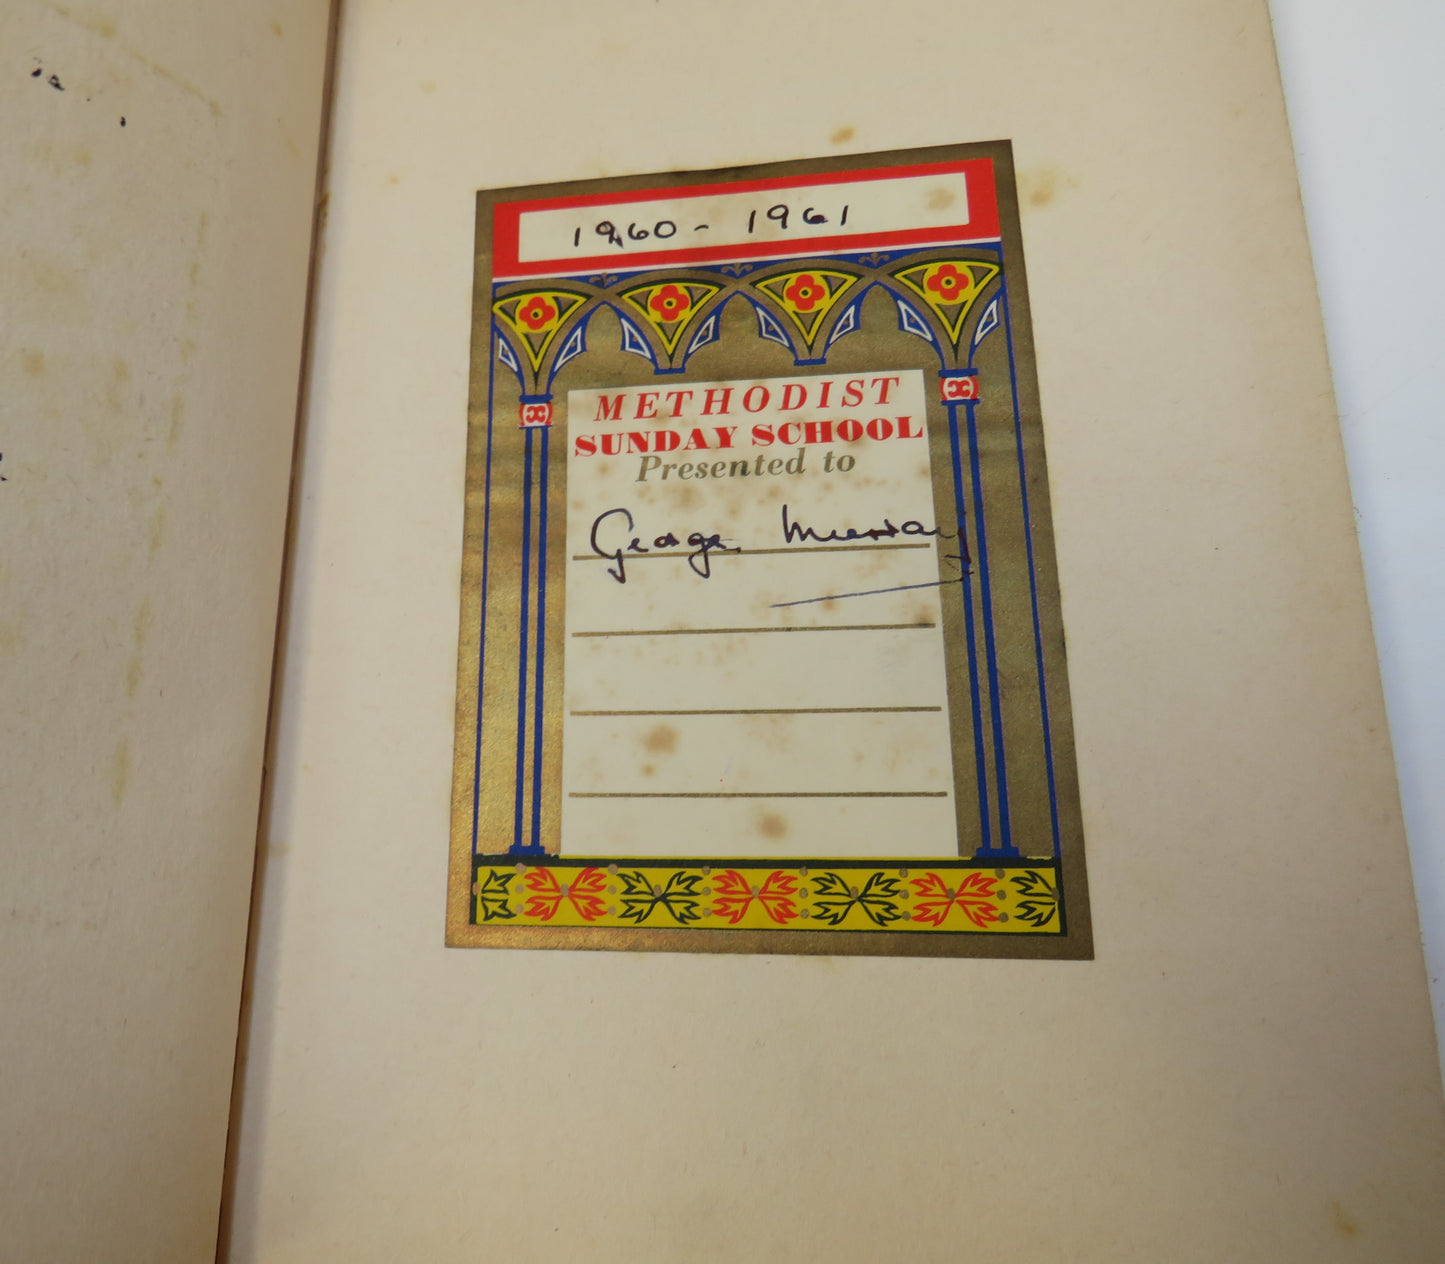 1960 - 1961
METHODIST
SUNDAY SCHOOL
Presented to
George Murray